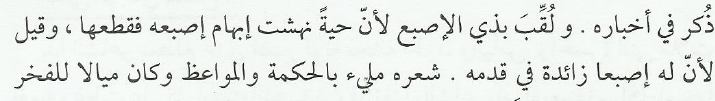 ذُكر في أخباره . و لُقِّبَ بذي الإصبع لأنّ حيةً نهشت إبهام إصبعه فقطعها ، وقيل
لأنّ له إصبعا زائدة في قدمه . شعره مليء بالحكمة والمواعظ وكان ميالا للفخر